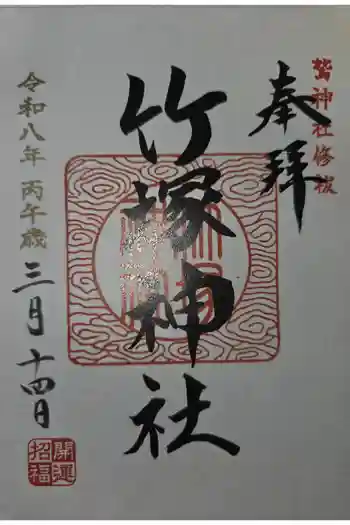 鷲神社修祓
奉拝
竹塚神社
令和八年 丙午歳
三月十四日
開運
招福